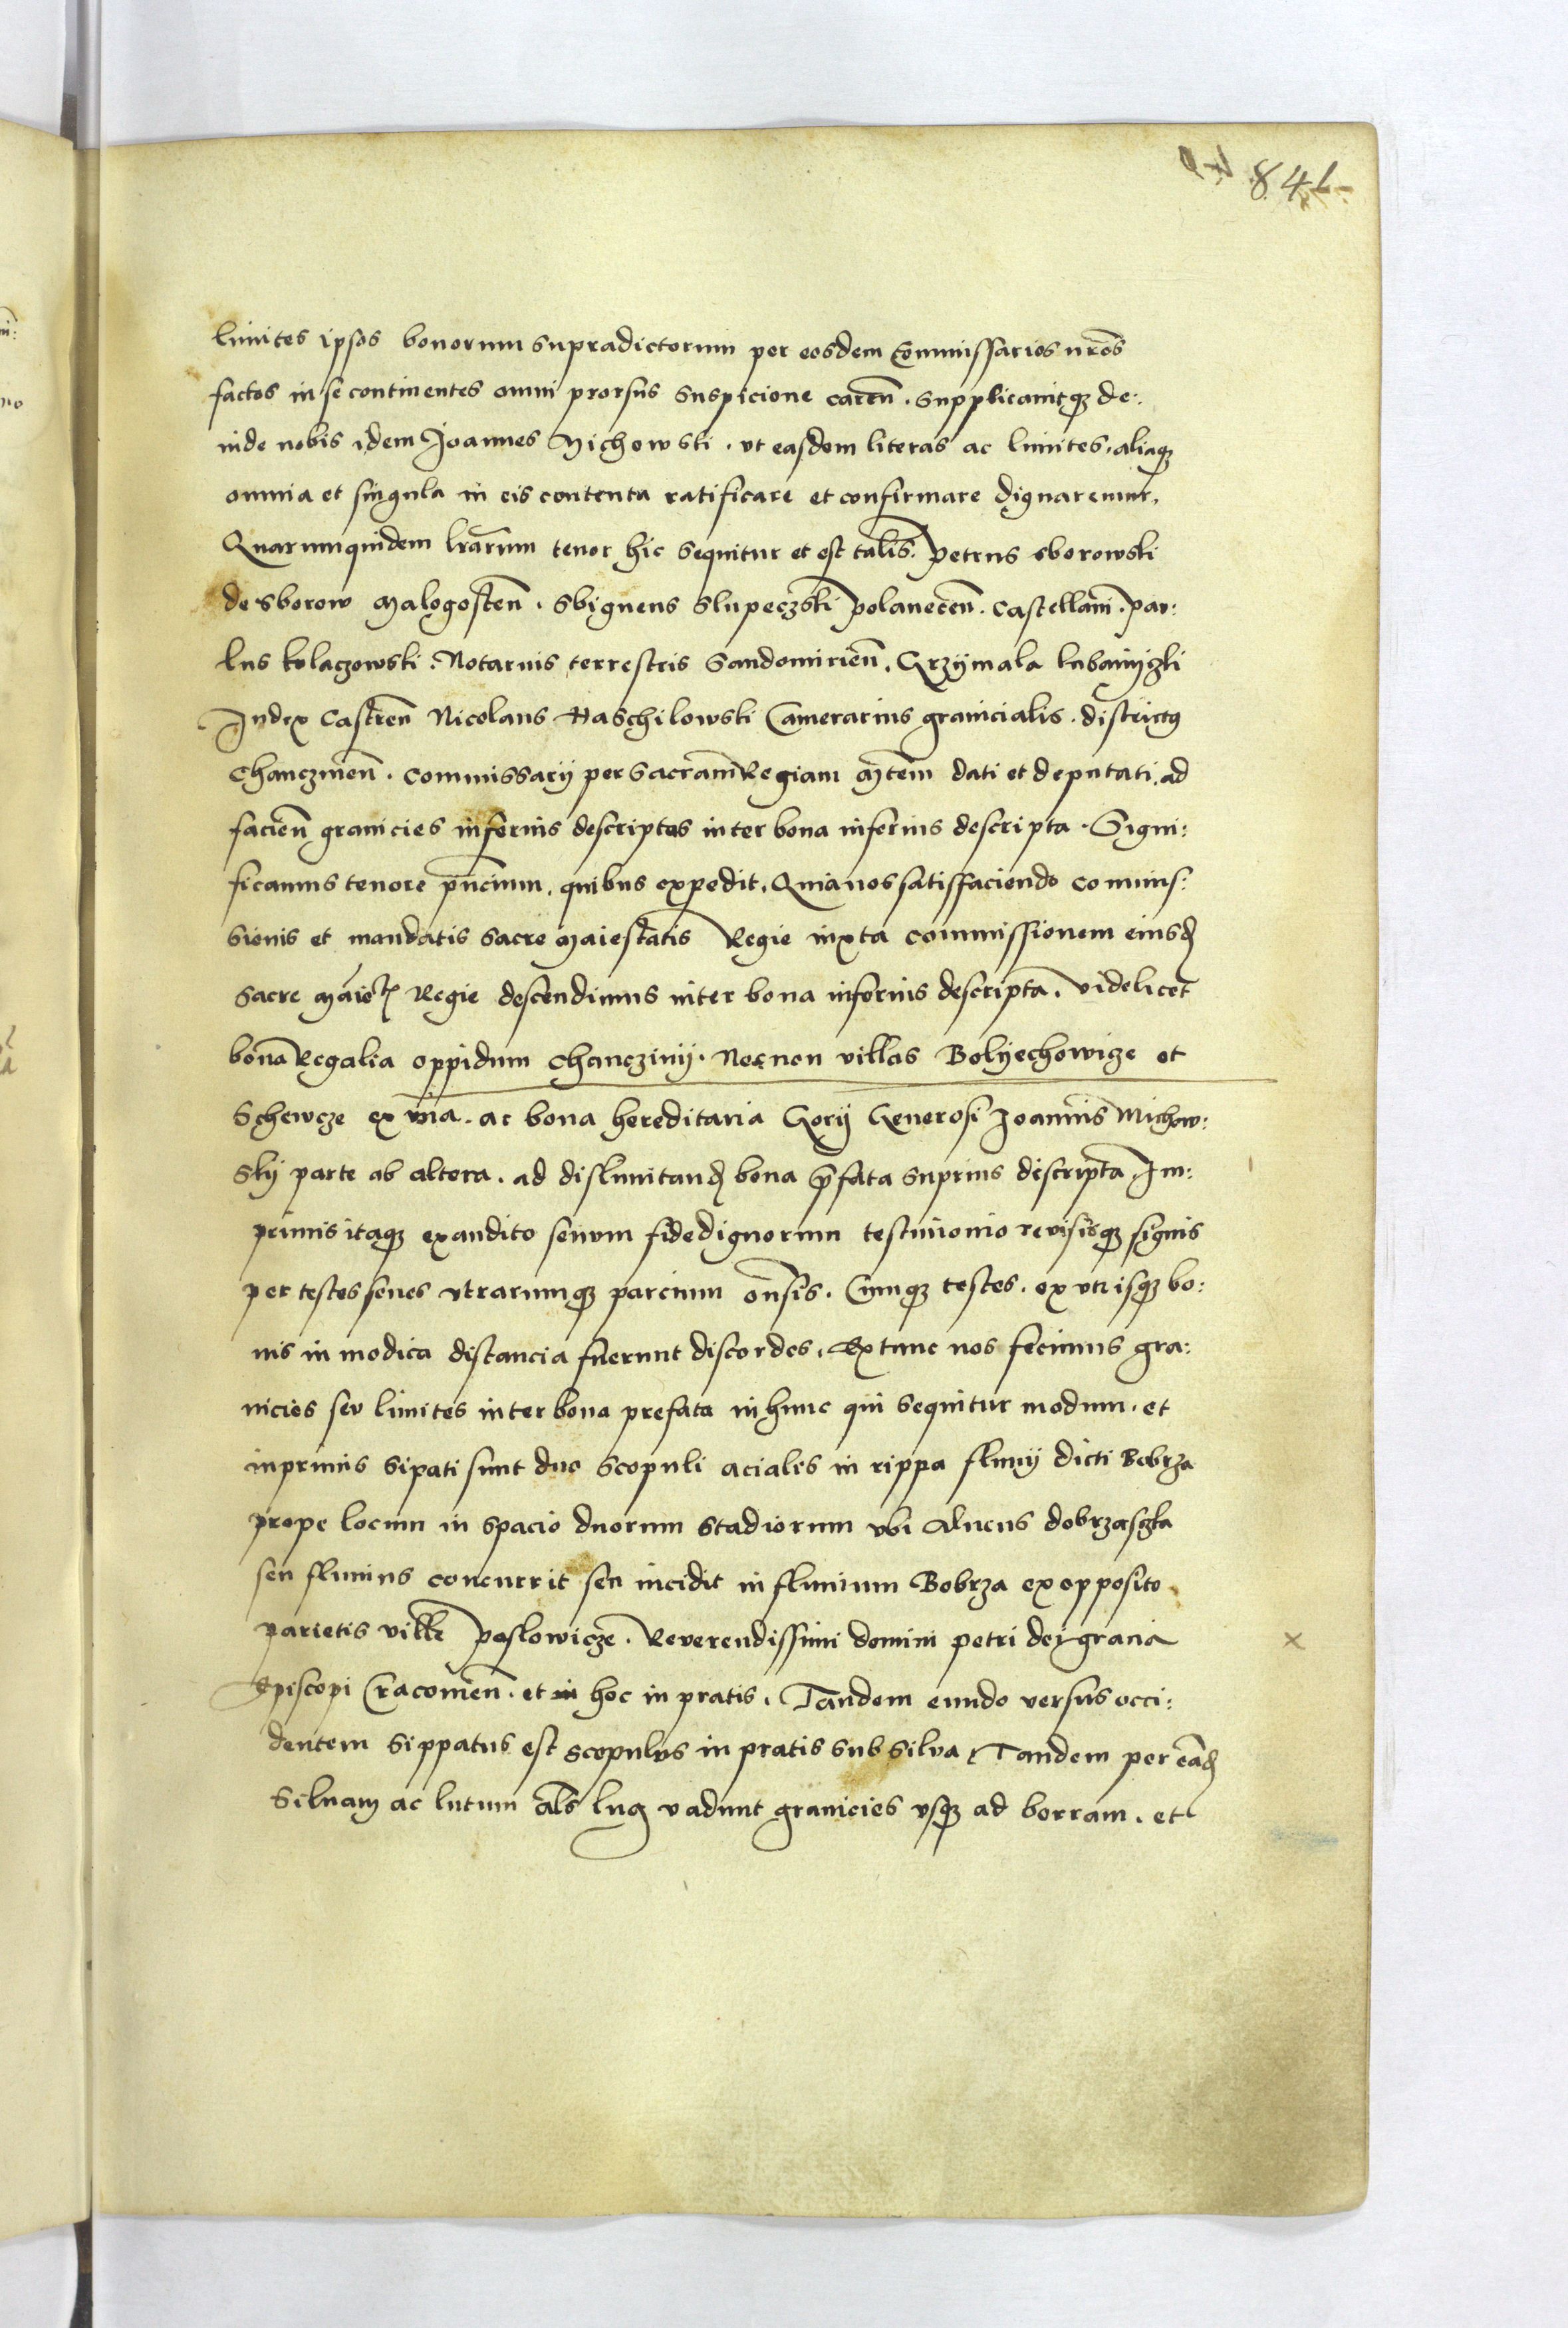 841
limites ipsos bonorum supradictorum per eosdem Commissarios nr̄os
factos in se continentes omni prorsus suspicione careñ. supplicauitqȝ de:
inde nobis idem Joannes Michowski. vt easdem literas ac limites. aliaqȝ
omnia et singula in eis contenta ratificare et confirmare dignaremur.
Quarumquidem lr̄arum tenor hic sequitur et est talis. Petrus sborowski
de sborow Malogosteñ. Sbigneus Slupeczski Polaneceñ. Castellani. Pau:
lus kolaczowski. Notarius terrestris Sandomirieñ. Grzymala
Judex Castreñ Nicolaus Haschilowski Camerarius granicialis. districtꝯ
Chanczineñ. Commissarij per Sacram Regiam Mtēm dati et deputati. ad
facieñ granicies inferius descriptas inter bona inferius descripta. Signi:
ficamus tenore pn̄cium. quibus expedit. Quia nos satisfaciendo Commis:
sionis et mandatis Sacre Maiestatis Regie iuxta commissionem eiusdꝫ
Sacre Maiestꝭ Regie descendimus inter bona inferius descripta. videlicet
bona Regalia oppidum Chanczinij. Necnon villas Bolyechowicze et
Schewcze ex vna. ac bona hereditaria Gorij Generosi Joannis Michow:
skÿ parte ab altera. ad dislimitandꝫ bona pr̄fata superius descripta. Im:
primis itaqȝ exaudito senum fidedignorum testimonio reuisisqȝ signis
per testes senes vtrarumqȝ parcium on̄sis. Cumqȝ testes. ex vtrisqȝ bo:
nis in modica distancia fuerunt discordes. Extunc nos fecimus gra:
nicies seu limites inter bona prefata in hunc qui sequitur modum. et
inprimis sipati sunt duo scopuli aciales in rippa fluuij dicti Bobrza
prope locum in spacio duorum stadiorum vbi alueus dobrzaszka
seu fluuius concurrit seu incidit in fluuium Bobrza ex opposito
parietis ville Poslowicze. Reverendissimi domini Petri dei gracia
Episcopi Cracouieñ. et in hoc in pratis. Tandem eundo versus occi:
dentem sippatus est scopulus in pratis sub silva Tandem per eādꝫ
Siluam ac lutum als̄ lug vadunt granicies vsqȝ ad borram. et